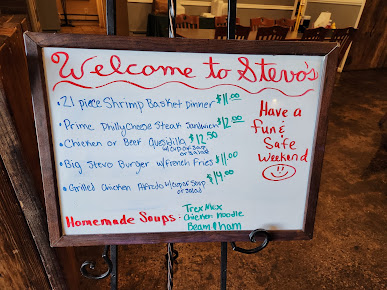 Welcome to Stevo's
• 21 piece Shrimp Basket Dinner $11.00
• Prime Philly Cheese Steak Sandwich $12.00
• Chicken or Beef Quesidilla $12.50
w/cup of soup
or salad
• Big Stevo Burger w/French Fries $11.00
• Grilled Chicken Alfredo w/cup of soup $14.00
or salad
Have a
fun &
Safe
Weekend
Homemade Soups:
Trex Mex
Chicken noodle
Bean & ham